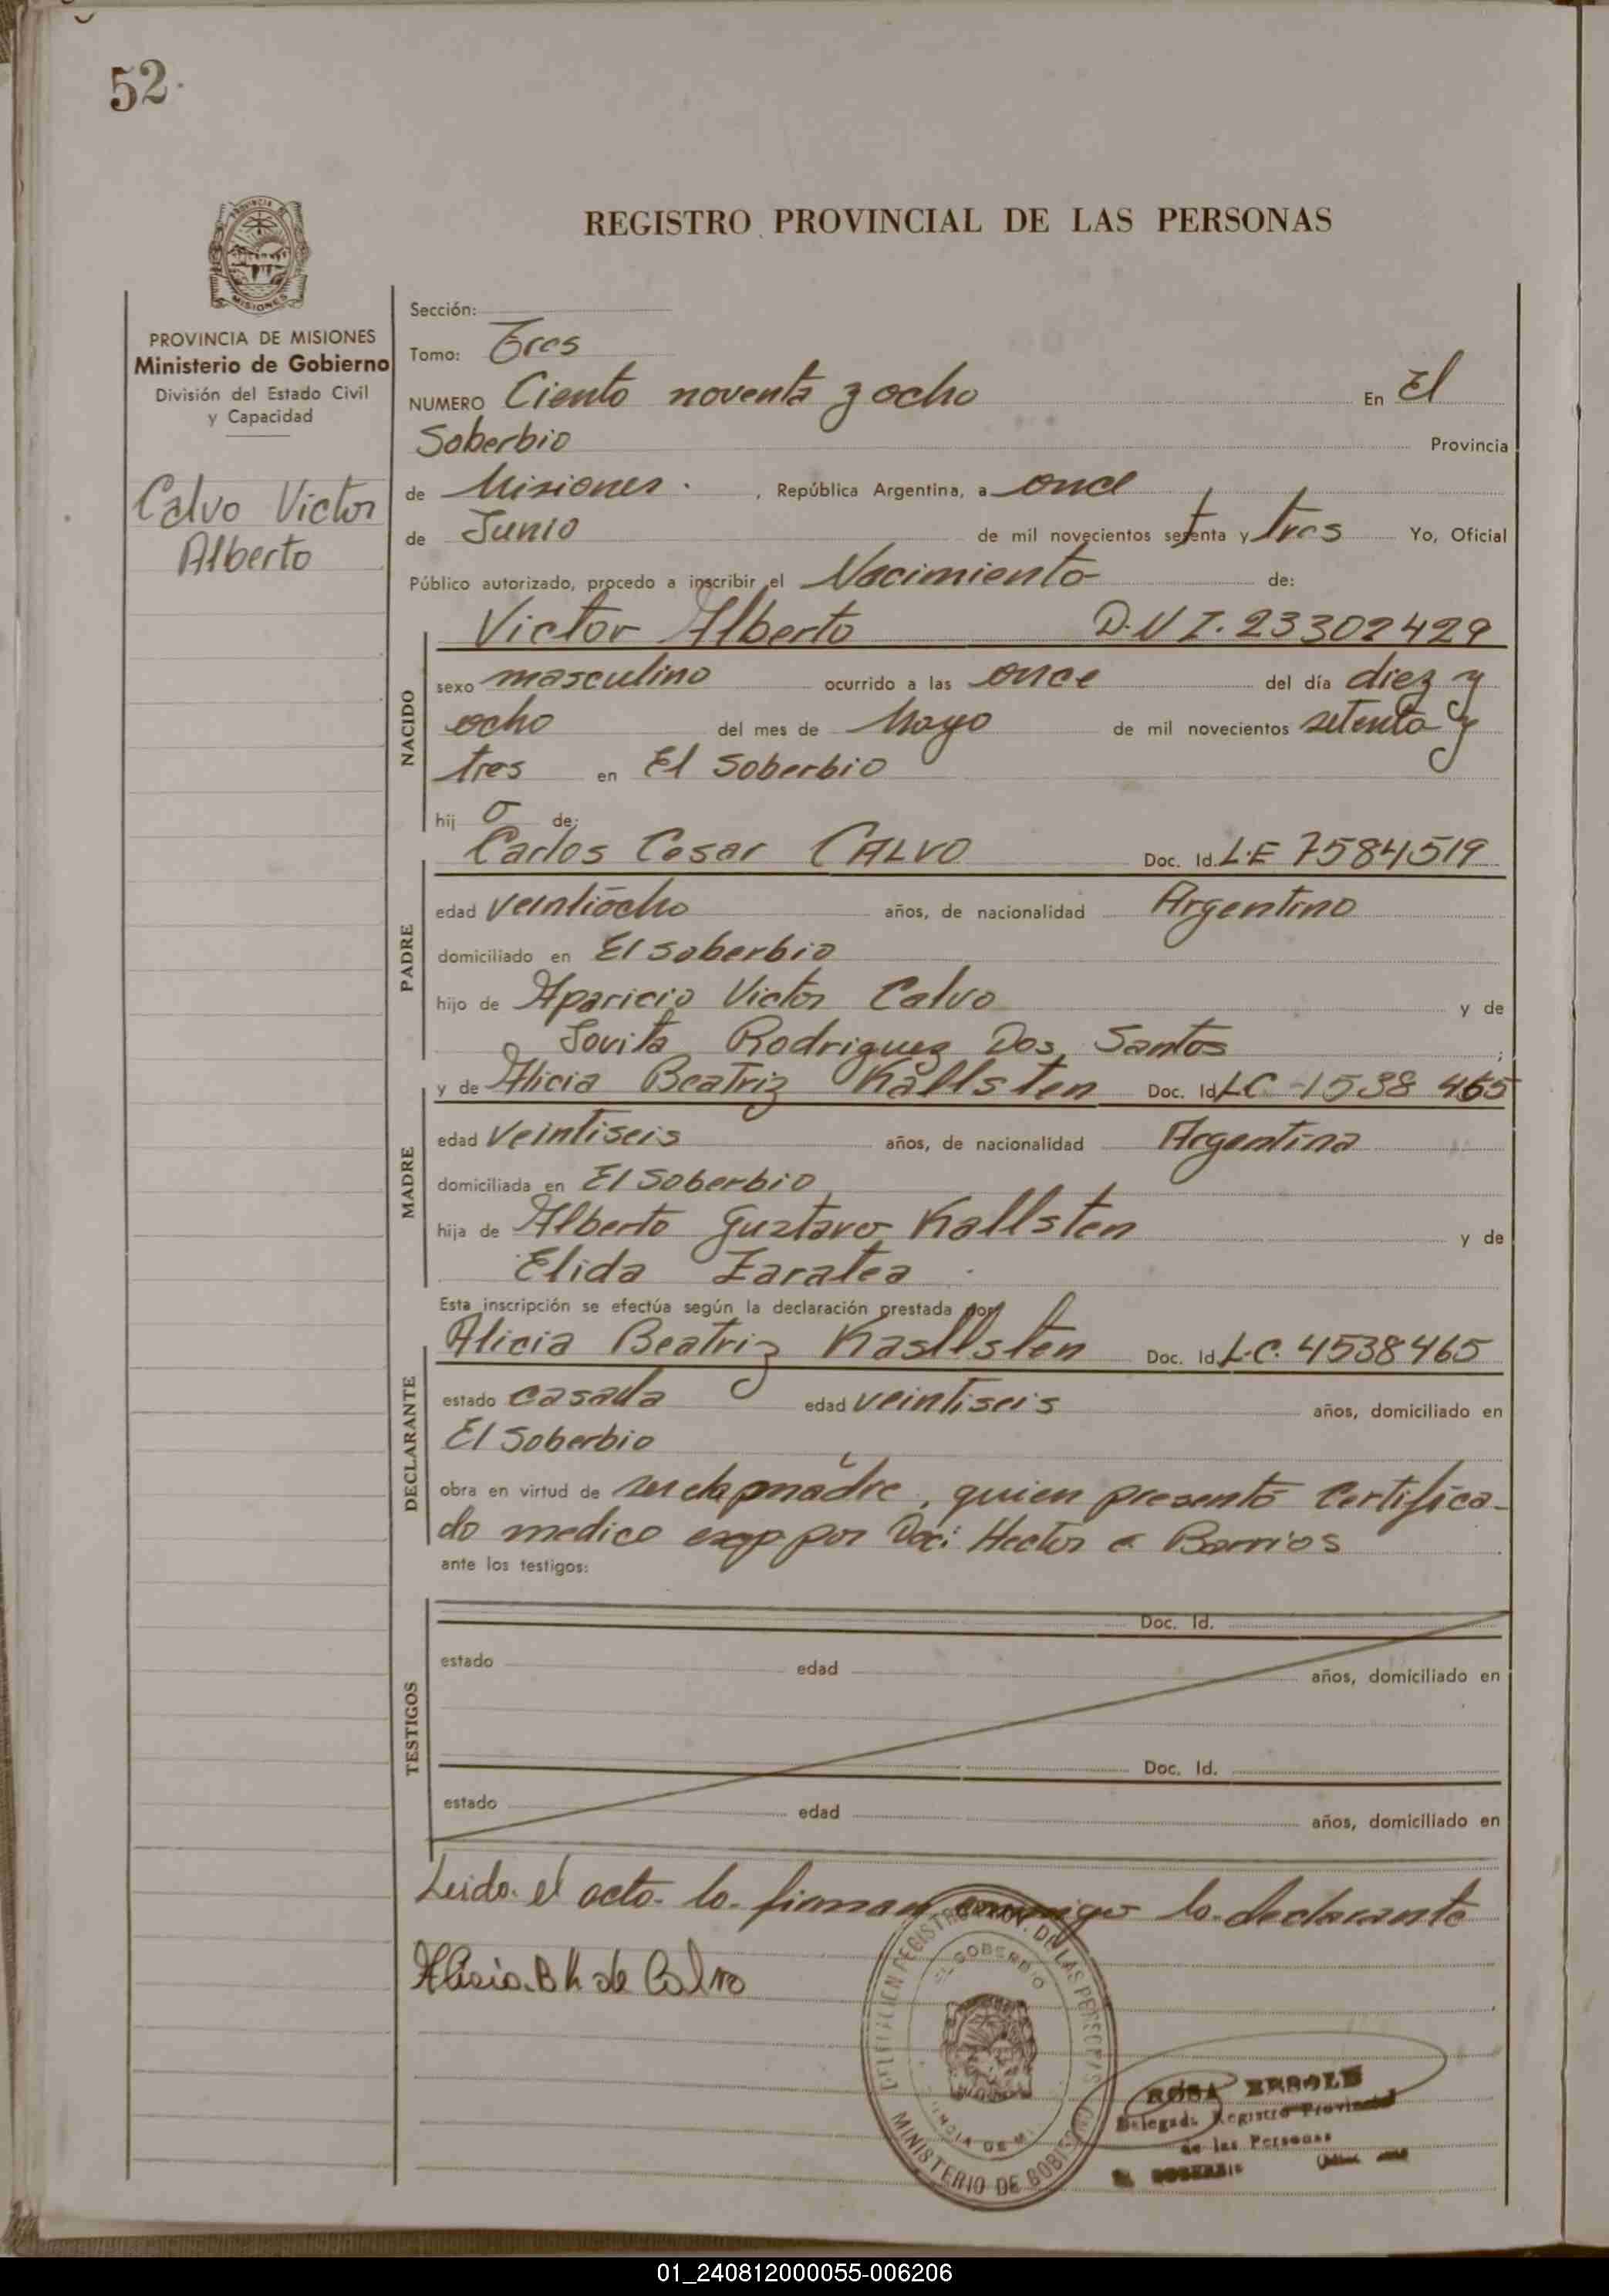 52
REGISTRO PROVINCIAL DE LAS PERSONAS
PROVINCIA DE MISIONES
Ministerio de Gobierno
División del Estado Civil
y Capacidad
Calvo Victor
Alberto
Sección:
Tomo: Tres
NUMERO Ciento noventa y ocho En El
Soberbio Provincia
de Misiones. , República Argentina, a once
de Junio de mil novecientos setenta y tres Yo, Oficial
Público autorizado, procedo a inscribir el Nacimiento de:
NACIDO
Victor Alberto D.N.I. 23302429
sexo masculino ocurrido a las once del día diez y
ocho del mes de Mayo de mil novecientos setenta y
tres en El Soberbio
hij o de:
PADRE
Carlos Cesar CALVO Doc. Id. L.E 7584519
edad veintiocho años, de nacionalidad Argentino
domiciliado en El Soberbio
hijo de Aparicio Victor Calvo y de
Jovita Rodriguez Dos Santos ;
MADRE
y de Alicia Beatriz Kallsten Doc. Id. LC 1538 465
edad veintiseis años, de nacionalidad Argentina
domiciliada en El Soberbio
hija de Alberto Gustavo Kallsten y de
Elida Zaratea
Esta inscripción se efectúa según la declaración prestada por
DECLARANTE
Alicia Beatriz Kasllsten Doc. Id. L.C. 4538465
estado casada edad veintiseis años, domiciliado en
El Soberbio
obra en virtud de ser la madre, quien presentó Certifica-
do medico exp por Doc: Hector Barrios
ante los testigos:
TESTIGOS
Doc. Id.
estado edad años, domiciliado en
Doc. Id.
estado edad años, domiciliado en
Leida el acta la firman conmigo la declarante
Alicia B K de Calvo
EL SOBERBIO
MINISTERIO DE GOBIERNO
ROSA
Delegada Registro Provincial
de las Personas
EL SOBERBIO
01_240812000055-006206